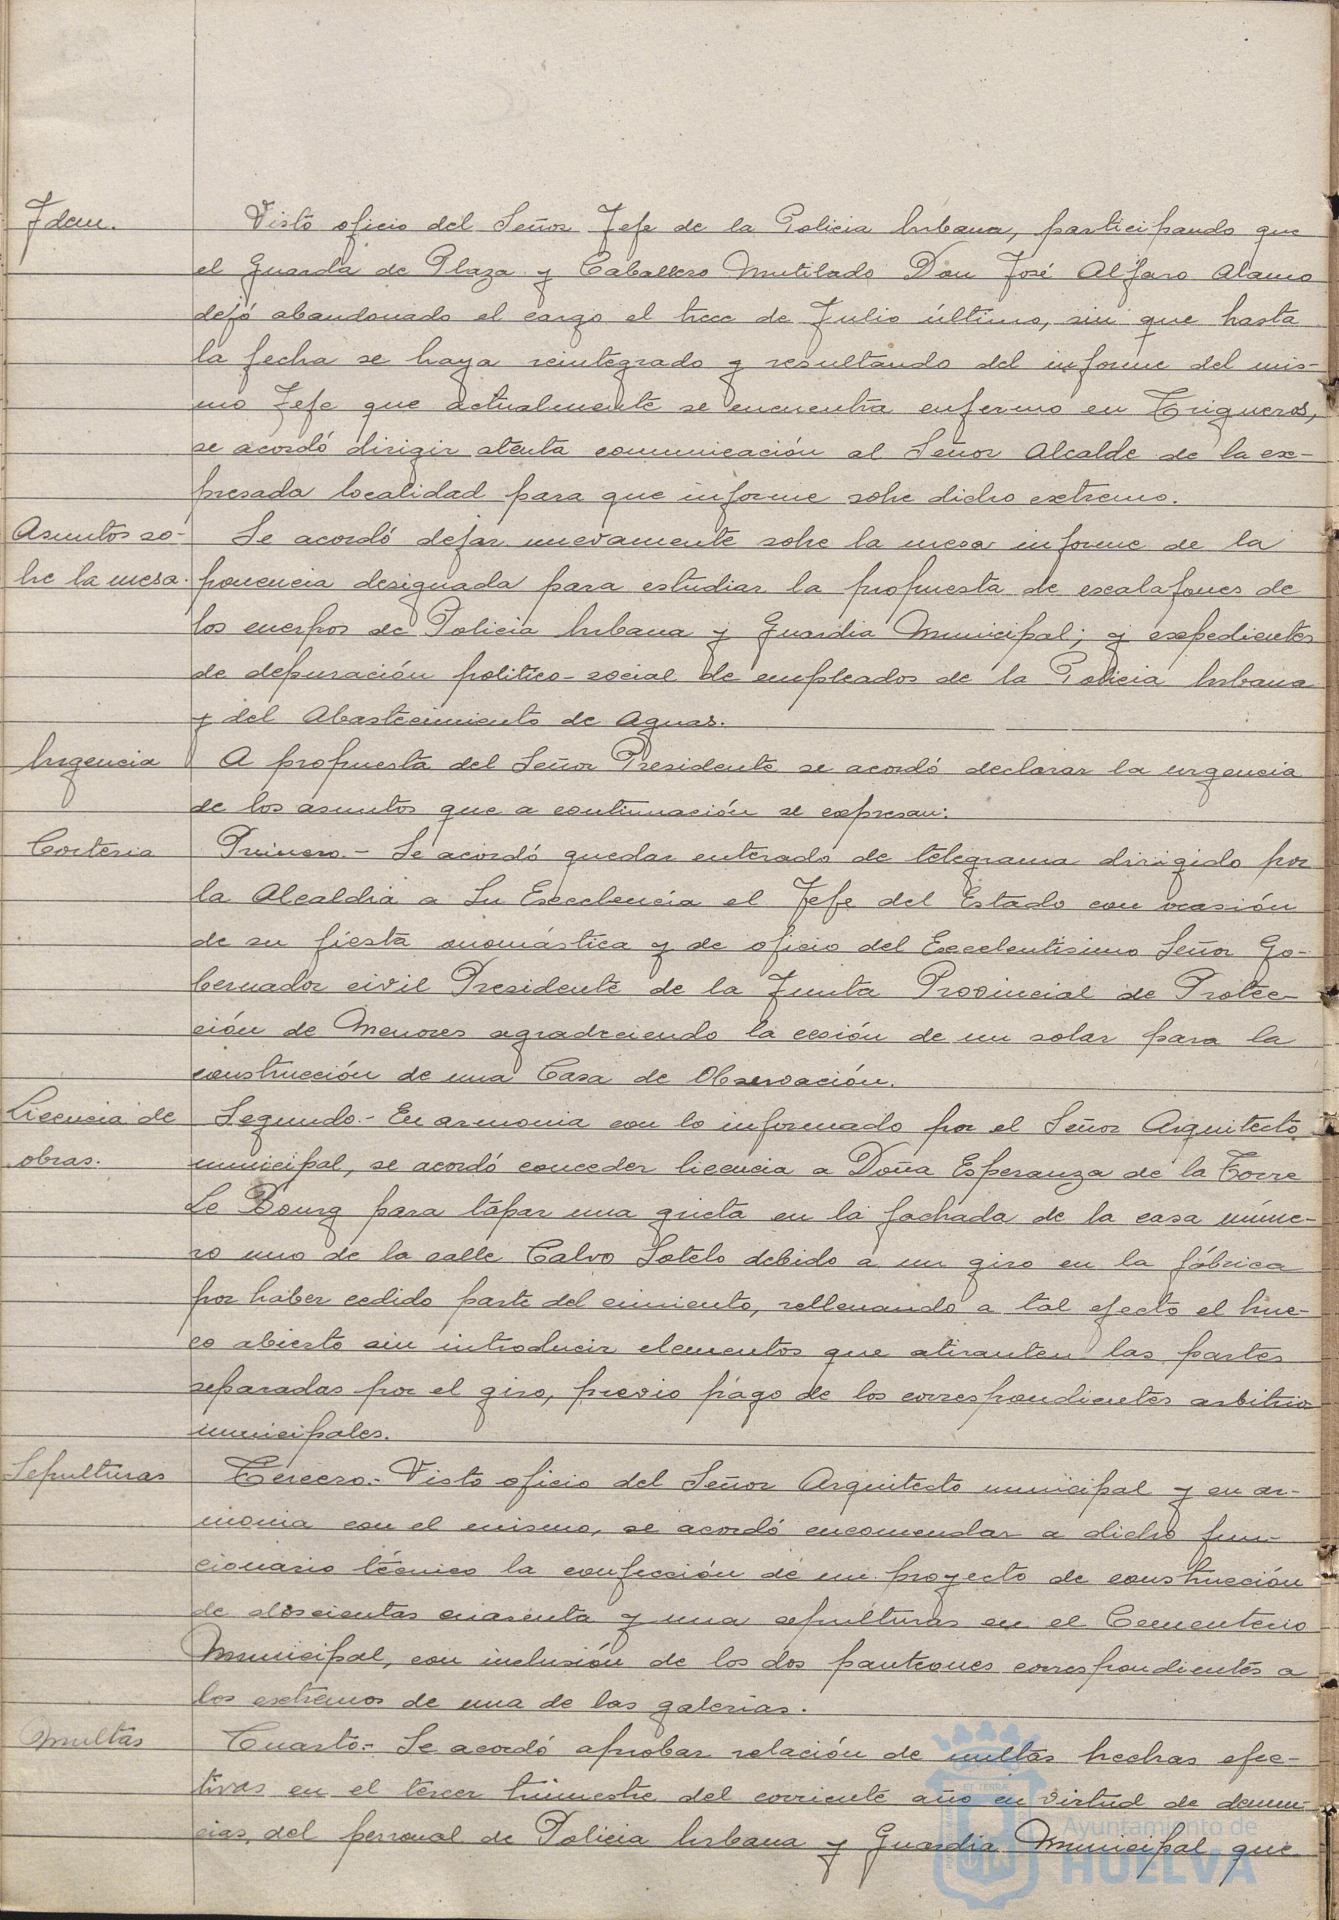 Idem.
Visto oficio del Señor Jefe de la Policia Urbana, participando que
el Guarda de Plaza y Caballero Mutilado Don José Alfaro Alamo
dejó abandonado el cargo el trece de Julio último, sin que hasta
la fecha se haya reintegrado y resultando del informe del mis-
mo Jefe que actualmente se encuentra enfermo en Trigueros,
se acordó dirigir atenta comunicación al Señor Alcalde de la ex-
presada localidad para que informe sobre dicho extremo.
Asuntos so-
bre la mesa.
Se acordó dejar nuevamente sobre la mesa informe de la
ponencia designada para estudiar la propuesta de escalafones de
los cuerpos de Policia Urbana y Guardia Municipal; y expedientes
de depuración politico-social de empleados de la Policia Urbana
y del Abastecimiento de Aguas.
Urgencia
A propuesta del Señor Presidente se acordó declarar la urgencia
de los asuntos que a continuación se expresan:
Cortesia
Primero.- Se acordó quedar enterado de telegrama dirigido por
la Alcaldia a Su Excelencia el Jefe del Estado con ocasión
de su fiesta onomástica y de oficio del Excelentisimo Señor Go-
bernador civil Presidente de la Junta Provincial de Protec-
ción de Menores agradeciendo la cesión de un solar para la
construcción de una Casa de Observación.
Licencia de
obras.
Segundo.- En armonia con lo informado por el Señor Arquitecto
municipal, se acordó conceder licencia a Doña Esperanza de la Torre
Le Bourg para tapar una grieta en la fachada de la casa núme-
ro uno de la calle Calvo Sotelo debido a un giro en la fábrica
por haber cedido parte del cimiento, rellenando a tal efecto el hue-
co abierto sin introducir elementos que atiranten las partes
separadas por el giro, previo pago de los correspondientes arbitrios
municipales.
Sepulturas
Tercero.- Visto oficio del Señor Arquitecto municipal y en ar-
monia con el mismo, se acordó encomendar a dicho fun-
cionario técnico la confección de un proyecto de construcción
de doscientas cuarenta y una sepulturas en el Cementerio
Municipal, con inclusión de los dos panteones correspondientes a
los extremos de una de las galerias.
Multas
Cuarto.- Se acordó aprobar relación de multas hechas efec-
tivas en el tercer trimestre del corriente año en virtud de denun-
cias del personal de Policia Urbana y Guardia Municipal que
Ayuntamiento de
HUELVA